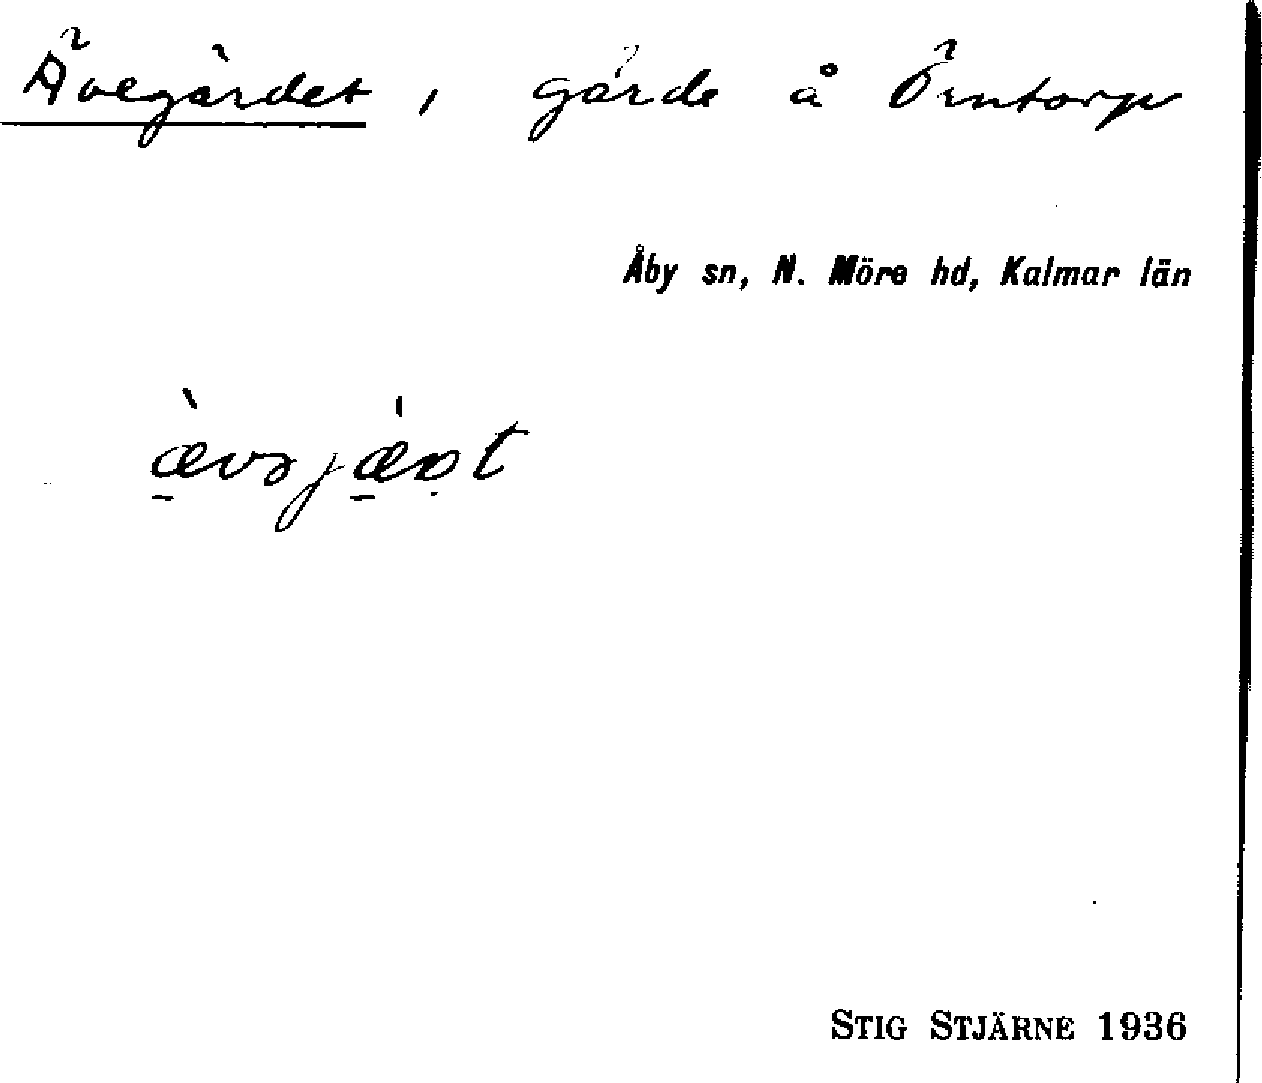 Ävegärdet, gärde å Örntorp
Åby sn, N. Möre hd, Kalmar län
æ̠̀vəjæ̠̍ḍt
STIG STJÄRNE 1936